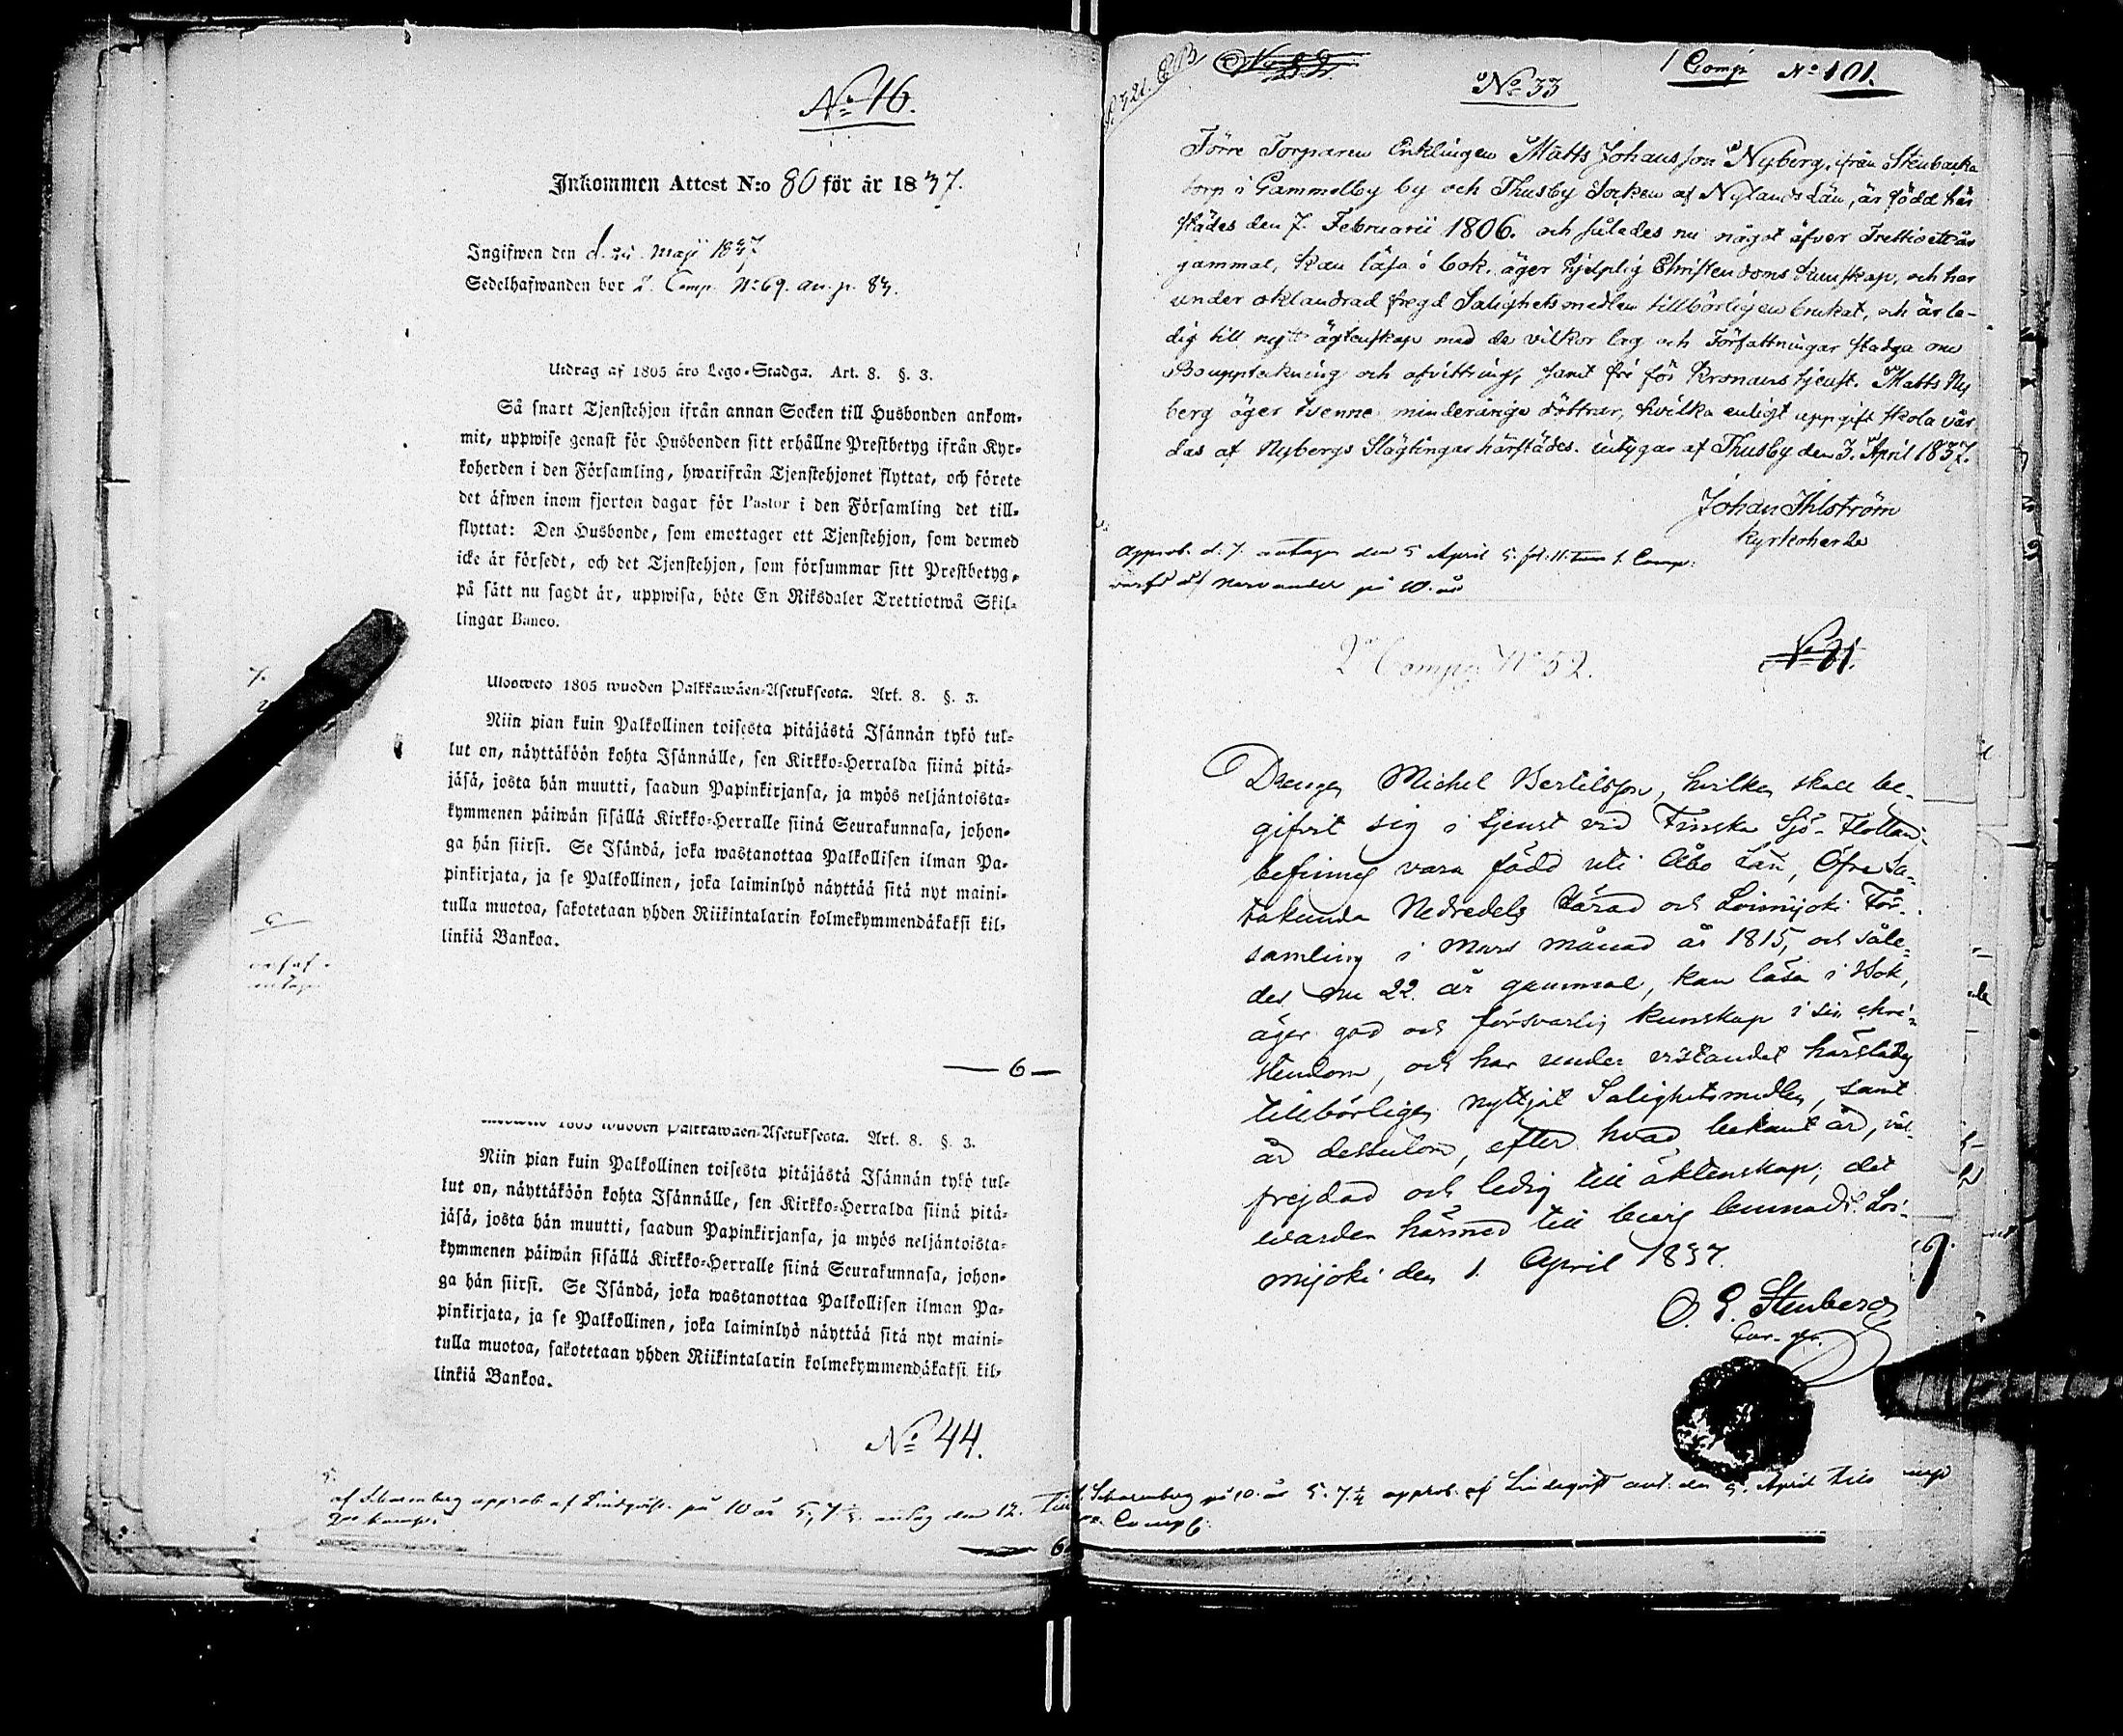 No 16.
Inkommen Attest N:o 80 för år 1837.
Ingifwen den d. Maji 1837
Sedelhafwanden bor 2. Comp. No 69. an. p. 83.
Utdrag af 1805 års Lego-Stadga. Art. 8. §. 3.
Så snart Tjenstehjon ifrån annan Socken till Husbonden ankom-
mit, uppwise genast för Husbonden sitt erhållne Prestbetyg ifrån Kyr-
koherden i den Församling, hwarifrån Tjenstehjonet flyttat, och förete
det äfwen inom fjorton dagar för Pastor i den Församling det till-
flyttat: Den Husbonde, som emottager ett Tjenstehjon, som dermed
icke är försedt, och det Tjenstehjon, som försummar sitt Prestbetyg,
på sätt nu sagdt är, uppwisa, böte En Riksdaler Trettiotwå Skil-
lingar Banco.
Ulosweto 1805 wuoden Palkkawäen-Asetuksesta. Art. 8. §. 3.
Niin pian kuin Palkollinen toisesta pitäjästä Isännän tykö tul-
lut on, näyttäköön kohta Isännälle, sen Kirkko-Herralda siinä pitä-
jäsä, josta hän muutti, saadun Papinkirjansa, ja myös neljäntoista-
kymmenen päiwän sisällä Kirkko-Herralle siinä Seurakunnasa, johon-
ga hän siirsi. Se Isändä, joka wastanottaa Palkollisen ilman Pa-
pinkirjata, ja se Palkollinen, joka laiminlyö näyttää sitä nyt maini-
tulla muotoa, sakotetaan yhden Riikintalarin kolmekymmendäkaksi kil-
linkiä Bankoa.
— 6 —
1805 wuoden Palkkawäen-Asetuksesta. Art. 8. §. 3.
Niin pian kuin Palkollinen toisesta pitäjästä Isännän tykö tul-
lut on, näyttäköön kohta Isännälle, sen Kirkko-Herralda siinä pitä-
jäsä, josta hän muutti, saadun Papinkirjansa, ja myös neljäntoista-
kymmenen päiwän sisällä Kirkko-Herralle siinä Seurakunnasa, johon-
ga hän siirsi. Se Isändä, joka wastanottaa Palkollisen ilman Pa-
pinkirjata, ja se Palkollinen, joka laiminlyö näyttää sitä nyt maini-
tulla muotoa, sakotetaan yhden Riikintalarin kolmekymmendäkaksi kil-
linkiä Bankoa.
No 44.
af Scharenberg approb. af Lindqvist på 10 år 5, 7 1/2 antag den 12.
6
No 33
1 Comp No 101.
Förre Torparen Enklingen Matts Johansson Nyberg, ifrån Stenbacka
torp i Gammelby by och Thusby Socken af Nylands Län, är född här
städes den 7. Februarii 1806. och således nu något öfver Trettioett år
gammal, kan läsa i bok, äger hjelplig Christendoms kunskap, och har
under oklandrad fregd Salighetsmedlen tillbörligen brukat, och är le-
dig till nytt ägtenskap med de vilkor lag och Författningar stadga om
Bouppteckning och afvittring, samt fri för Kronans tjenst. Matts Ny
berg äger tvenne minderåriga döttrar, hvilka enligt uppgift skola vår
das af Nybergs Slägtingar härstädes. intygar af Thusby den 3. April 1837.
Johan Ihlström
Kyrkoherde
Approb. d. 7. antagen den 5 April 5. f. 11. tum 1. Comp:
på 10. år
2a Comp: No 52.
No 31.
Drengen Michel Bertilsson, hvilken skall be-
gifvit sig i tjenst vid Finska Sjö-Flottan,
befinnes vara född uti Åbo Län, Öfre Sa-
takunda Nedredels Härad och Loimijoki För-
samling i Mars månad år 1815, och såle-
des nu 22 år gammal, kan läsa i Bok,
äger god och försvarlig kunskap i sin chri-
stendom, och har under vistandet härstädes
tillbörligen nyttjat Salighetsmedlen, samt
är dessutom, efter hvad bekant är, väl-
frejdad och ledig till äktenskap, det
warder härmed till bevis lemnadt. Loi-
mijoki den 1. April 1837.
O. E. Stenberg
Scharenberg på 10. år 5. 7 1/2 approb. af Lindqvist ant. den 5. April till
Comp: